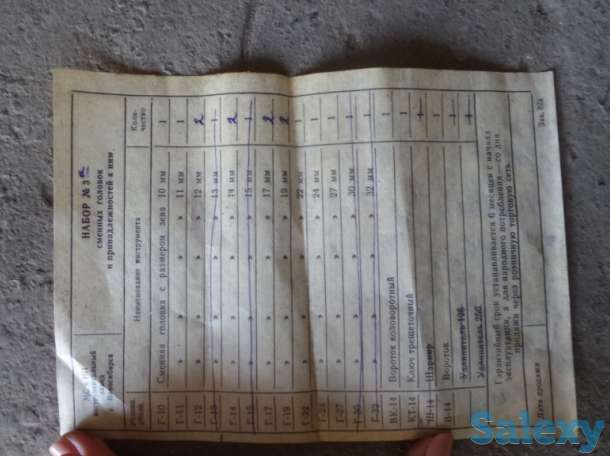 НАБОР № 3а
сменных головок
и принадлежностей к ним
Наименование инструмента
Коли-
чество
Г-10 Сменная головка с размером зева 10 мм 1
Г-11 » » » 11 мм 1
Г-12 » » » 12 мм 2
Г-13 » » » 13 мм 1
Г-14 » » » 14 мм 2
Г-15 » » » 15 мм 1
Г-17 » » » 17 мм 2
Г-19 » » » 19 мм 2
Г-22 » » » 22 мм 1
Г-24 » » » 24 мм 1
Г-27 » » » 27 мм 1
Г-30 » » » 30 мм 1
Г-32 » » » 32 мм 1
ВК-14 Вороток коловоротный 1
КТ-14 Ключ трещеточный 1
Ш-14 Шарнир 1
В-14 Вороток 1
Удлинитель 1
Удлинитель 250 1
Гарантийный срок устанавливается 6 месяцев с начала
эксплуатации, а для народного потребления — со дня
продажи через розничную торговую сеть.
Дата продажи
Зак.
Salexy